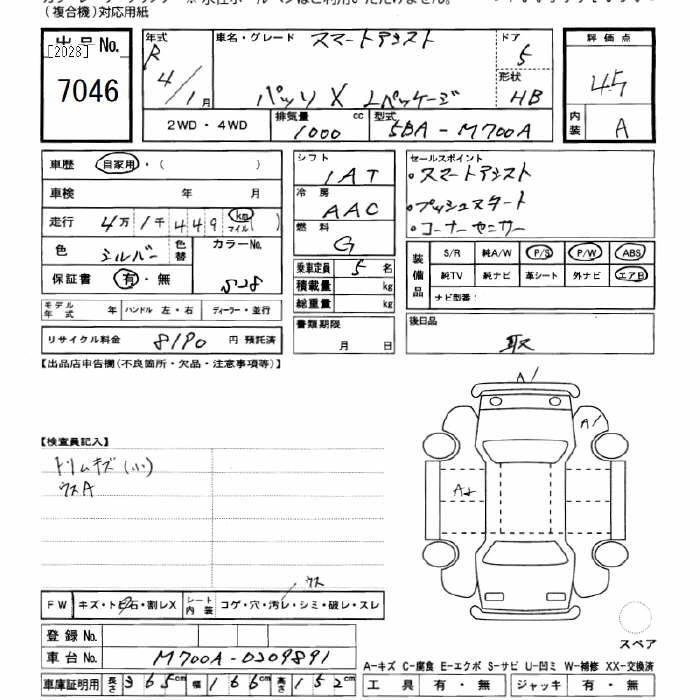 (複合機)対応用紙
出品No.
[2028]
7046
年式
R 4/1月
車名・グレード スマートアシスト
パッソ X Lパッケージ
ドア 5
形状 HB
評価点
4.5
内装 A
2WD・4WD
排気量 1000 cc
型式 5BA-M700A
車歴 自家用・( )
車検 年 月
走行 4万1千449 km マイル( )
色 シルバー 色替 カラーNo. S28
保証書 有・無
モデル年式 年 ハンドル 左・右 ディーラー・並行
リサイクル料金 8190 円 預託済
シフト IAT
冷房 AAC
燃料 G
乗車定員 5 名
積載量 kg
総重量 kg
書類期限
月 日
セールスポイント
・スマートアシスト
・プッシュスタート
・コーナーセンサー
装備品
S/R 純A/W P/S P/W ABS
純TV 純ナビ 革シート 外ナビ エアB
ナビ型番:
後日品
取
【出品店申告欄(不良箇所・欠品・注意事項等)】
A1
A1
A2
【検査員記入】
トリムキズ(小)
ウスA
ウス
FW キズ・トビ石・割レX シート内装 コゲ・穴・汚レ・シミ・破レ・スレ
スペア
登録No.
車台No. M700A-0209891
車庫証明用 長さ 365cm 幅 166cm 高さ 152cm
A-キズ C-腐食 E-エクボ S-サビ U-凹ミ W-補修 XX-交換済
工具 有・無 ジャッキ 有・無